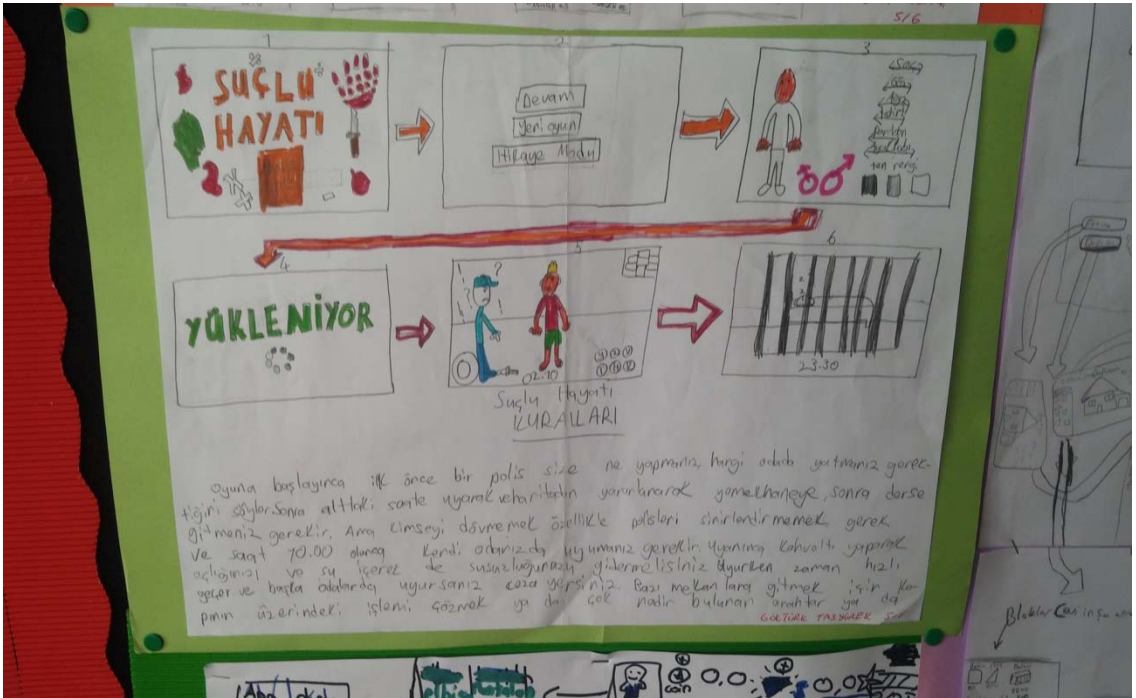 5/6
1
SUÇLU
HAYATI
2
Devam
Yeni oyun
Hikaye Modu
3
ten rengi
4
YÜKLENİYOR
5
?
02.10
6
23.30
Suçlu Hayatı
KURALLARI
Oyuna başlayınca ilk önce bir polis size ne yapmanız, hangi odada yatmanız gerek-
tiğini söyler. Sonra alttaki saate uyarak ve haritadan yararlanarak yemekhaneye, sonra derse
gitmeniz gerekir. Ama kimseyi dövmemek özellikle polisleri sinirlendirmemek gerek
ve saat 10.00 olunca kendi odanızda uyumanız gerekir. Uyanınca kahvaltı yaparak
açlığınızı ve su içerek de susuzluğunuzu gidermelisiniz Uyurken zaman hızlı
geçer ve başka odalarda uyursanız ceza yersiniz. Bazı mekanlara gitmek için ka-
pının üzerindeki işlemi çözmek ya da çok nadir bulunan anahtar ya da
GÖLTÜRK TAŞYÜREK
Bloklar
coin